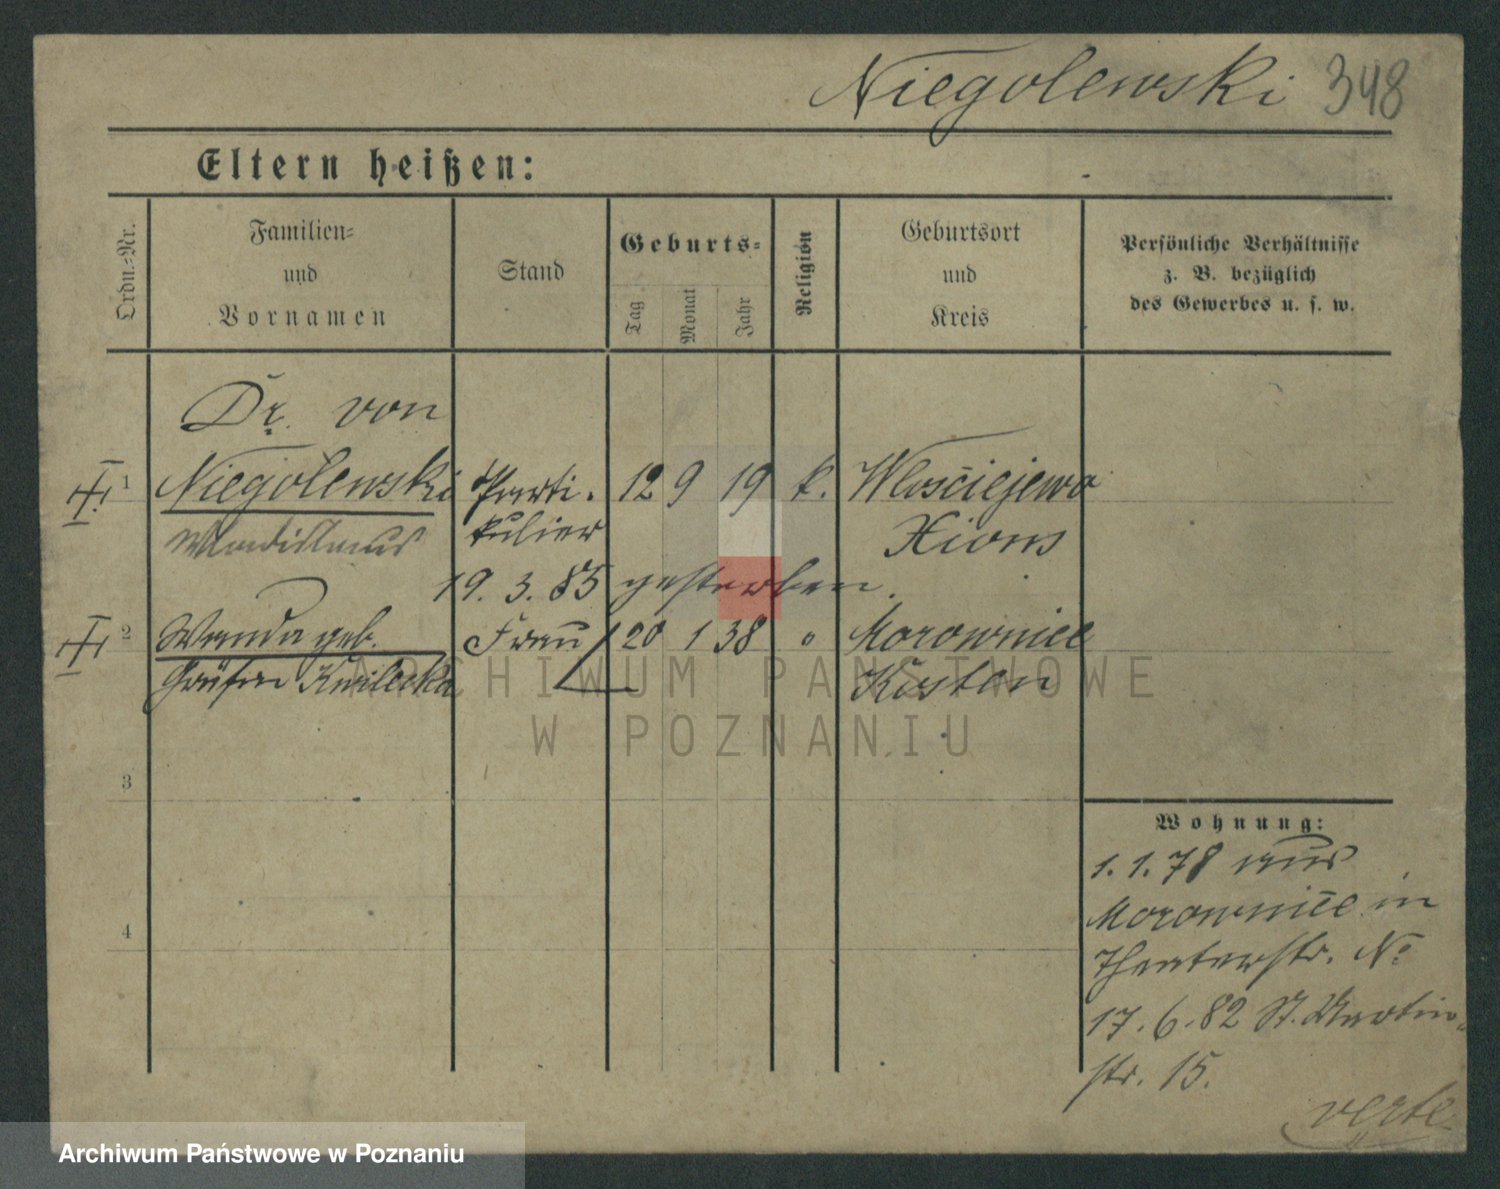 Niegolewski 348
Eltern heißen:
Ordn.-Nr.
Familien-
und
Vornamen
Stand
Geburts-
Tag
Monat
Jahr
Religion
Geburtsort
und
Kreis
Persönliche Verhältnisse
z. B. bezüglich
des Gewerbes u. s. w.
Dr. von
1 Niegolewski Parti- 12 9 19 k. Wlosciejewo
Wladislaus kulier Xions
19. 3. 85 gestorben.
2 Wanda geb. Frau 20 1 38 " Morownice
Gräfin Kwilecka Kosten
ARCHIWUM PAŃSTWOWE
W POZNANIU
3
4
Wohnung:
1. 1. 78 aus
Morownice in
Theaterstr. No
17. 6. 82 St. Martin-
str. 15.
verte
Archiwum Państwowe w Poznaniu